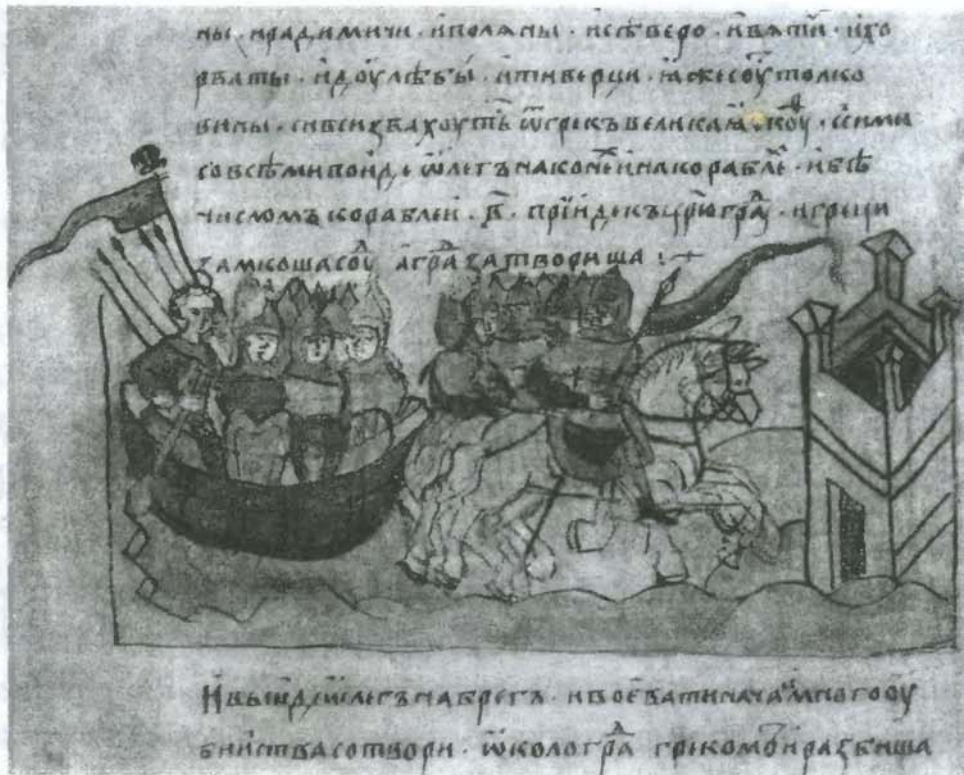 ны · и радимичи · и поляны · и сѣверо · и вѧтичи · и хо
рваты · и доулѣбы · и тиверци · ꙗже соуⷮ толко
вины · си вси звахоутьⷭ҇ ѿ грекъ великаꙗ скоуⷴ · с сими
со всѣми поиде ѡлегъ на конеⷯ и на кораблеⷯ · и бѣ
числомъ кораблеи · в҃ · прїиде къ цр҃юграⷣ · и греци
замкоша соуⷣ а граⷣ затвориша :+
И выиде ѡлегъ на брегъ · и воевати нача и много оу
биства сотвори · ѡколо граⷣ грекомъ и разбиша